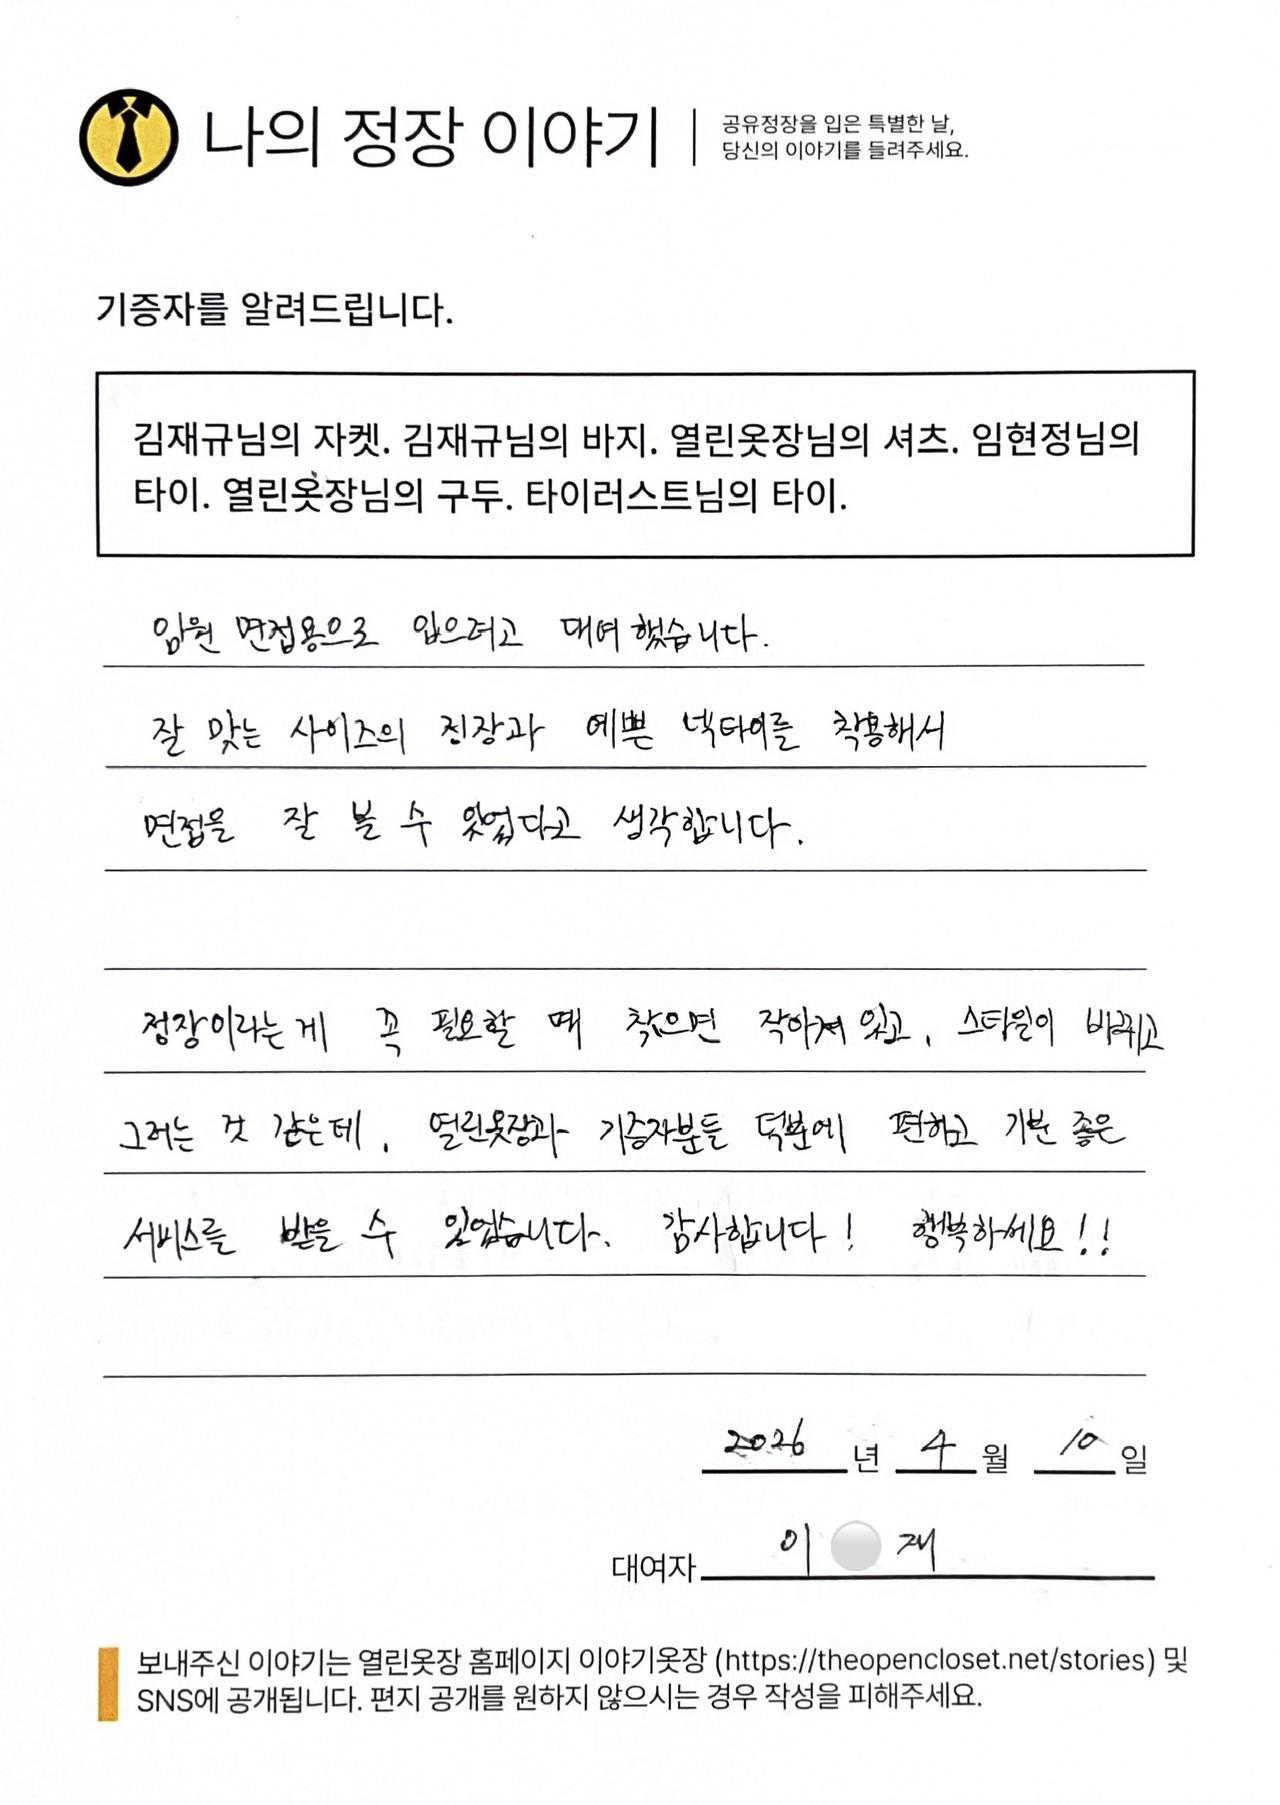 나의 정장 이야기
공유정장을 입은 특별한 날,
당신의 이야기를 들려주세요.
기증자를 알려드립니다.
김재규님의 자켓. 김재규님의 바지. 열린옷장님의 셔츠. 임현정님의
타이. 열린옷장님의 구두. 타이러스트님의 타이.
임원 면접용으로 입으려고 대여 했습니다.
잘 맞는 사이즈의 정장과 예쁜 넥타이를 착용해서
면접을 잘 볼 수 있었다고 생각합니다.
정장이라는게 꼭 필요할 때 찾으면 작아져 있고, 스타일이 바뀌고
그러는 것 같은데, 열린옷장과 기증자분들 덕분에 편하고 기분 좋은
서비스를 받을 수 있었습니다. 감사합니다! 행복하세요!!
2026 년 4 월 10 일
대여자 이 재
보내주신 이야기는 열린옷장 홈페이지 이야기옷장 (https://theopencloset.net/stories) 및
SNS에 공개됩니다. 편지 공개를 원하지 않으시는 경우 작성을 피해주세요.